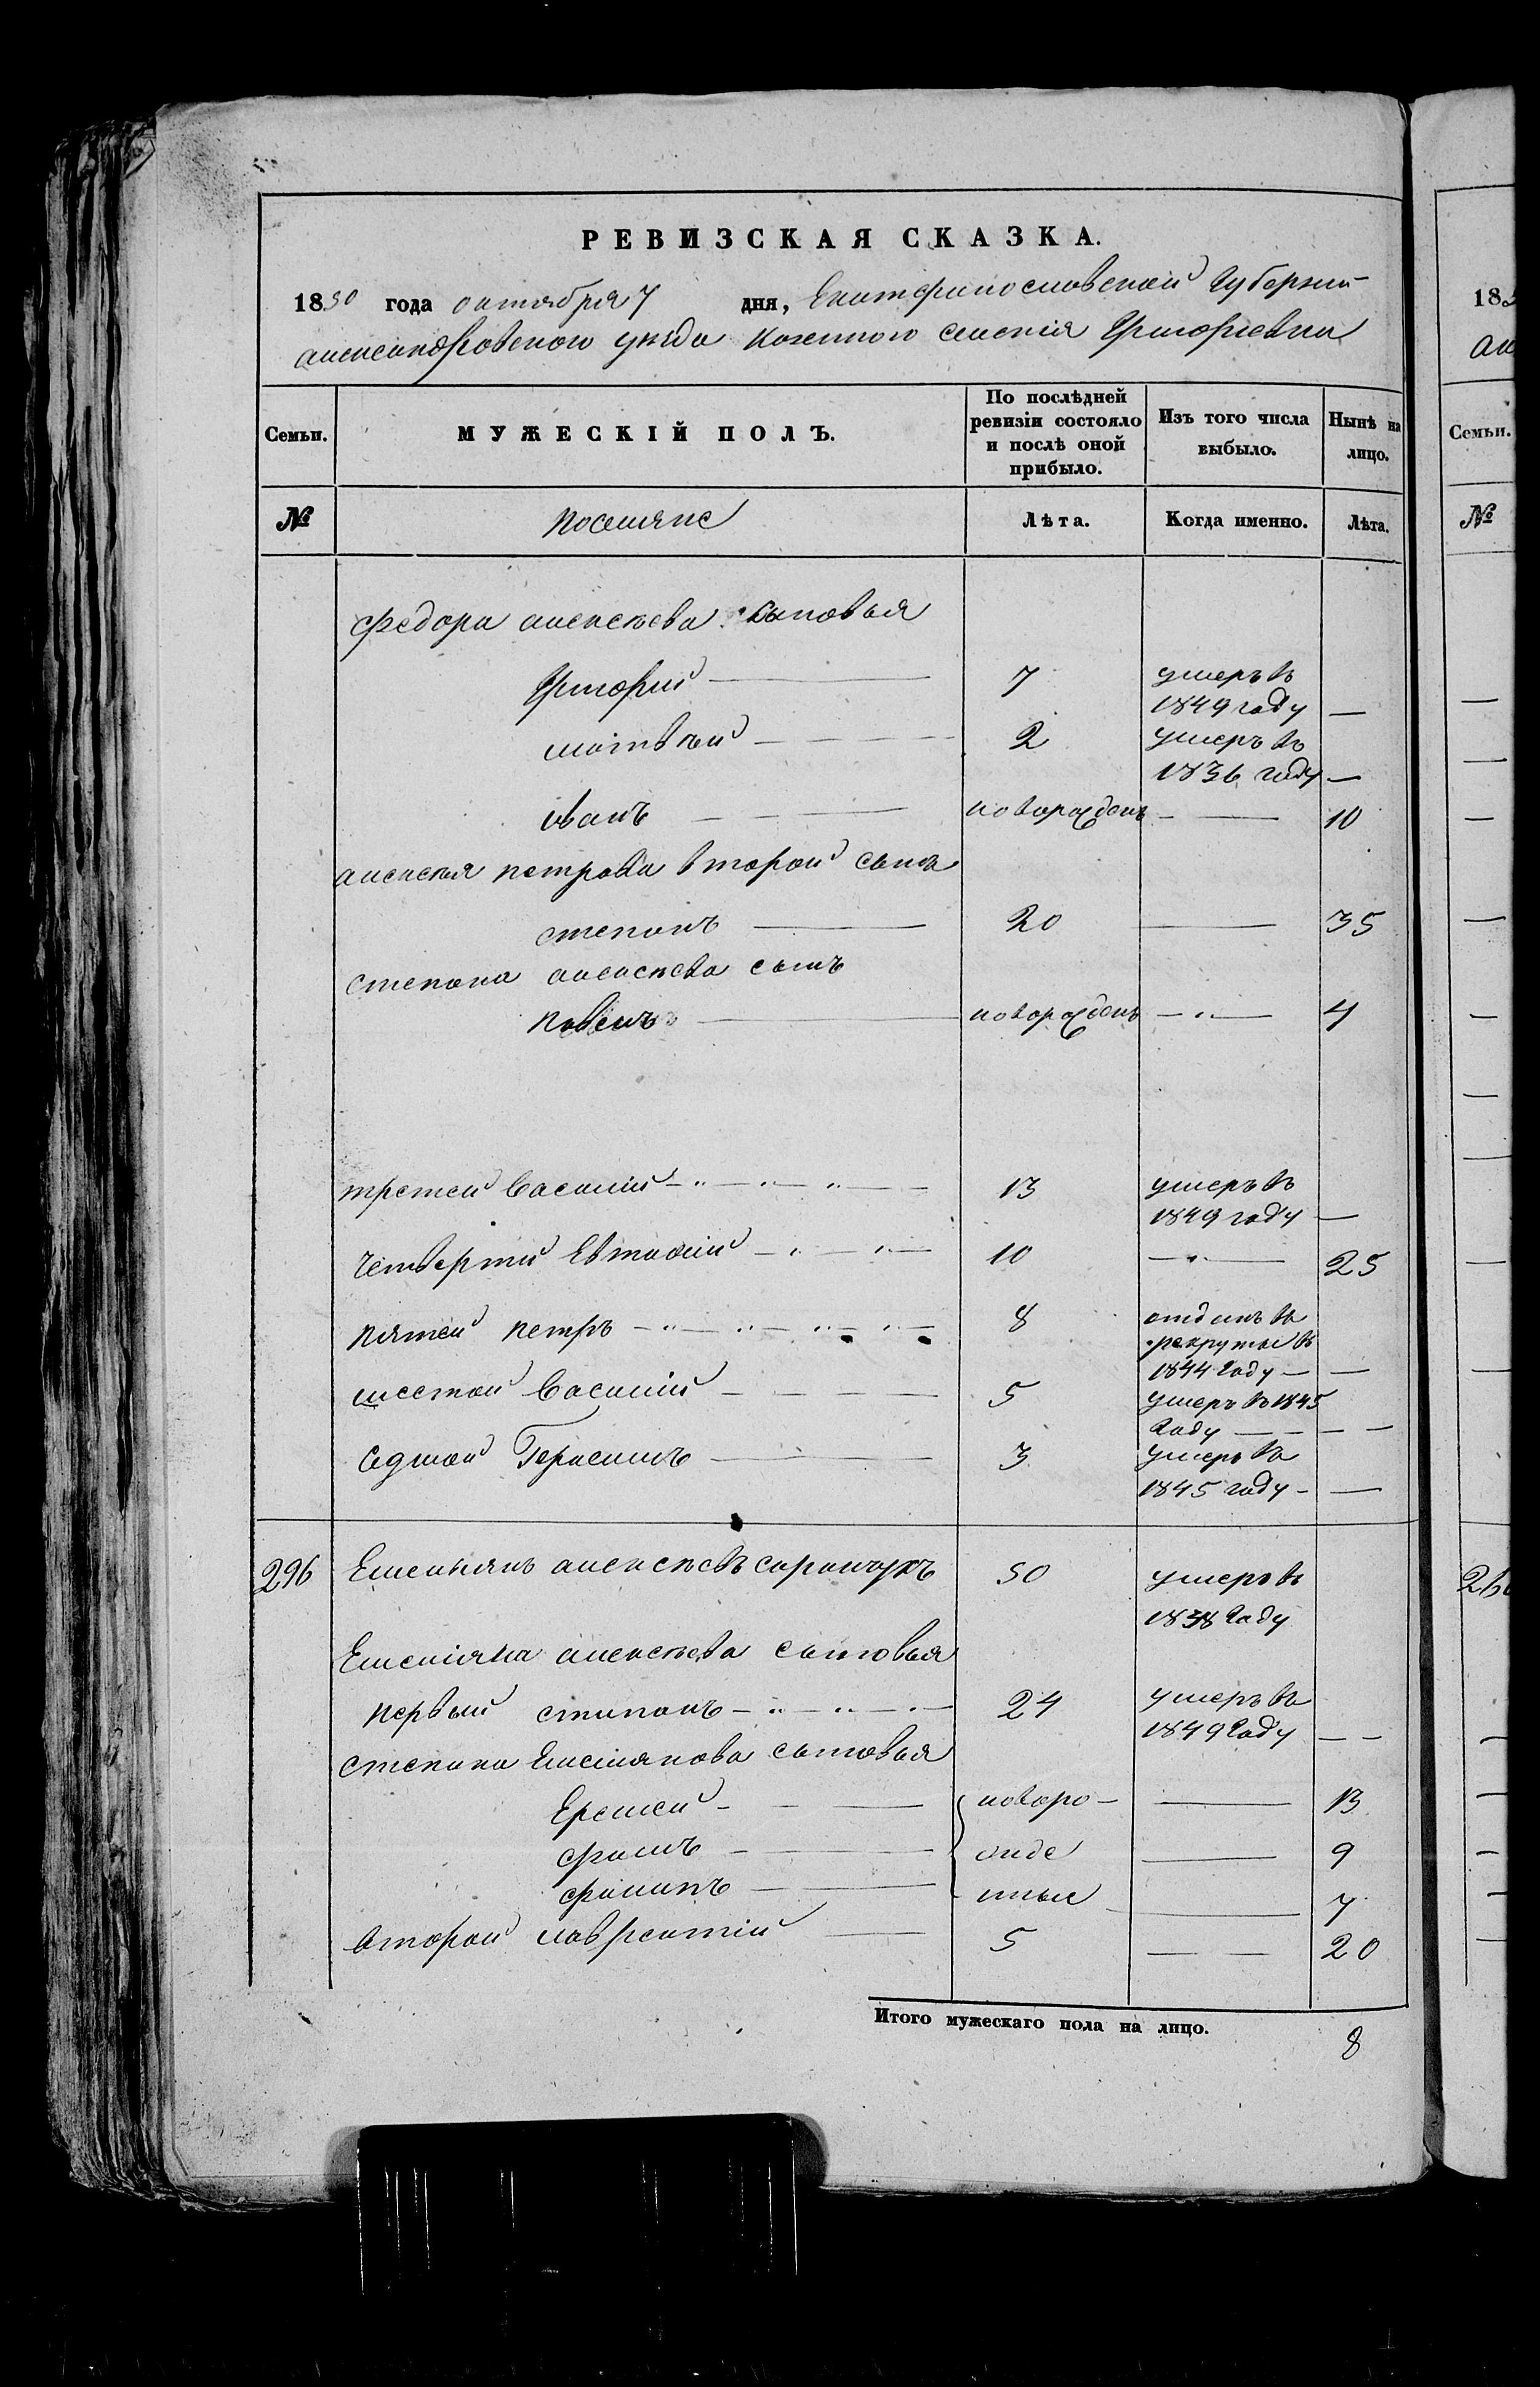 РЕВИЗСКАЯ СКАЗКА.
1850 года октября 7 дня, Екатеринославской Губернии
александровского уезда казенного селения Григоревка
Семьи. МУЖЕСКІЙ ПОЛЪ. По послѣдней ревизіи состояло и послѣ оной прибыло. Изъ того числа выбыло. Нынѣ на лицо.
№ поселяне Лѣта. Когда именно. Лѣта.
Федора алексѣева сыновья
Григорий — 7 умеръ въ 1849 году —
матвѣй — 2 умеръ въ 1836 году —
иванъ — новорожденъ — 10
алексѣя петрова второй сынъ
степанъ — 20 — 35
степана алексѣева сынъ
павелъ — новорожденъ — 4
третей Василий — 13 умеръ въ 1849 году —
четвертий 10 — 25
пятей петръ — 8 отданъ въ рекруты въ 1844 Году —
шестой Василий — 5 умеръ въ 1845 Году —
седмой Герасимъ — 3 умеръ въ 1845 году —
296 Емельянъ алексѣевъ 50 умеръ въ 1838 Году
Емелияна алексѣева сыновья
первый степанъ — 24 умеръ въ 1849 Году —
степана Емелянова сыновья
Еремей — новоро — 13
фома — жде — 9
филипъ — нные — 7
второй лаврентий — 5 — 20
Итого мужескаго пола на лицо. 8
185
Семьи.
№